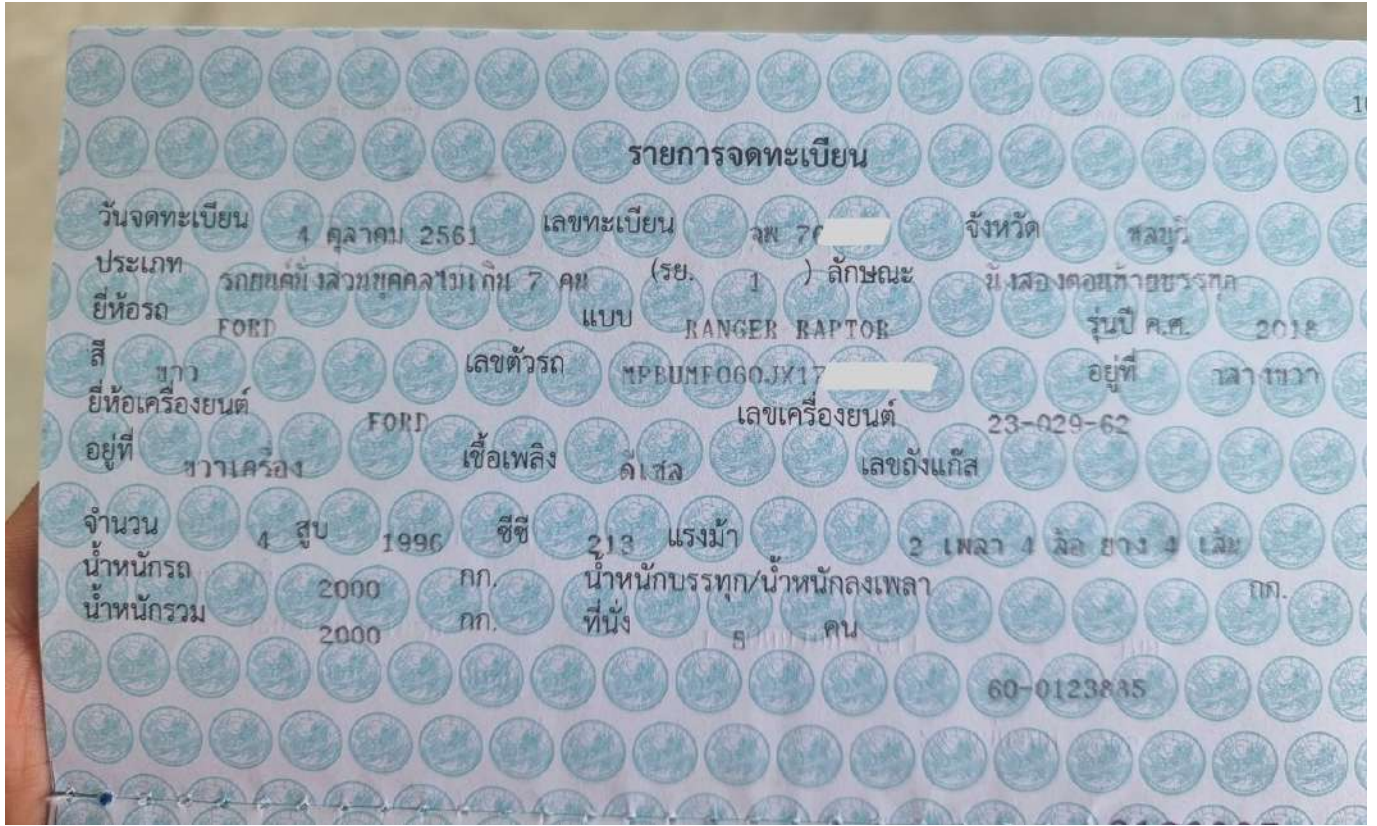 รายการจดทะเบียน
วันจดทะเบียน 4 ตุลาคม 2561 เลขทะเบียน 7 จังหวัด ชลบุรี
ประเภท รถยนต์นั่งส่วนบุคคลไม่เกิน 7 คน (รย. 1 ) ลักษณะ นั่งสองตอนท้ายบรรทุก
ยี่ห้อรถ FORD แบบ RANGER RAPTOR รุ่นปี ค.ศ. 2018
สี ขาว เลขตัวรถ MPBUMF060JX17 อยู่ที่ กลางขวา
ยี่ห้อเครื่องยนต์ FORD เลขเครื่องยนต์ 23-029-62
อยู่ที่ ขวาเครื่อง เชื้อเพลิง ดีเซล เลขถังแก๊ส
จำนวน 4 สูบ 1996 ซีซี 213 แรงม้า 2 เพลา 4 ล้อ ยาง 4 เส้น
น้ำหนักรถ 2000 กก. น้ำหนักบรรทุก/น้ำหนักลงเพลา กก.
น้ำหนักรวม 2000 กก. ที่นั่ง 5 คน
60-0123885